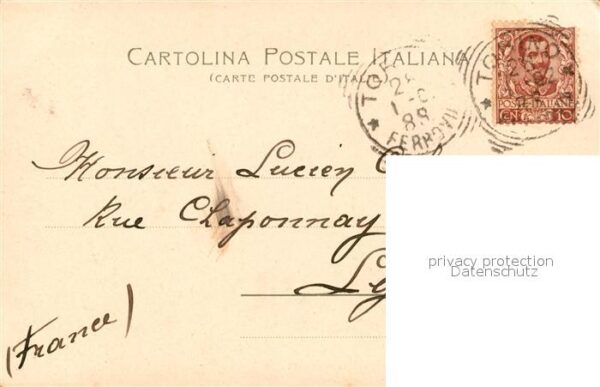 CARTOLINA POSTALE ITALIANA
(CARTE POSTALE D'ITALIE)
POSTE ITALIANE
CEN 10
FERROVIA
Monsieur Lucien
Rue Chaponnay
privacy protection
Datenschutz
(France)